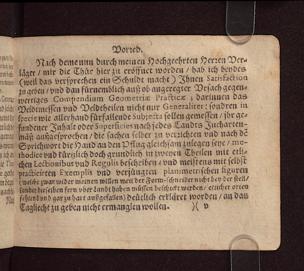 Vorred.
Nach deme nun durch meinen Hochgeehrten Herren Ver-
läger / mir die Thür hier zu eröffnet worden / hab ich beydes
(weil das versprechen ein Schuldt macht) Ihnen Satisfaction
zu geben / und dan fürnemlich auß ob angeregter Vrsach gegen-
wertiges Compendium Geometriæ Practicæ; darinnen das
Veldmessen und Veldtheilen nicht nur Generaliter: sondern in
specie wie allerhand fürfallende Subjecta sollen gemessen / die ge-
fundene Inhalt oder Superficies nach jedes Landts Jucharten-
mäß außgesprochen / die sachen selber zu verzichten und nach dē
Sprichwort die Hand an den Pflug gleichsam zulegen seye / mo-
thodice und kürtzlich doch grundtlich in zweyen Theilen mit etli-
chen Lectionibus und Regulis beschriben / und meistens mit selbst
practicierten Exemplis und verjüngten planimetrischen figuren
deutlich erklärt worden / an das
Tagliecht zu geben nicht ermanglen wollen.
)( v